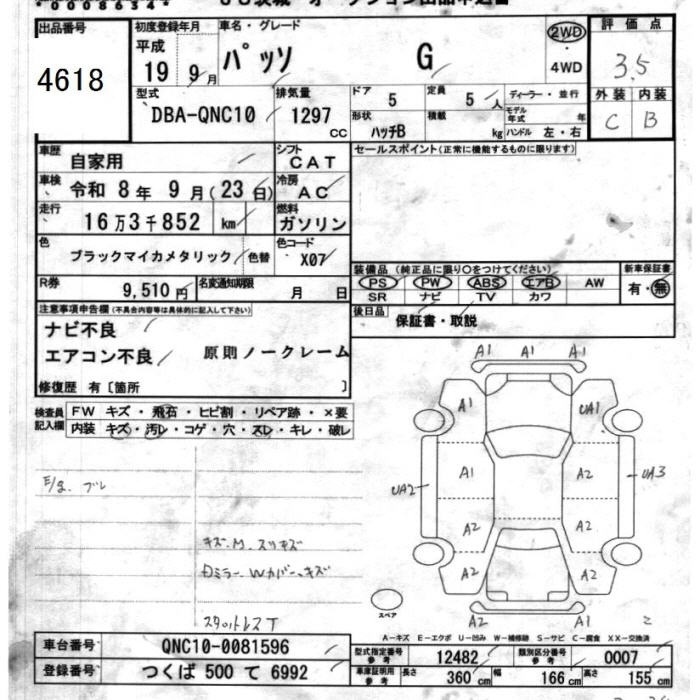 00086344
出品番号
4618
初度登録年月
平成
19 9月
車名・グレード
パッソ G
2WD
4WD
評価点
3.5
外装 内装
C B
型式
DBA-QNC10
排気量
1297 cc
ドア 5
定員 5人
形状 ハッチB
積載 kg
ディーラー・並行
モデル年式 年
ハンドル 左・右
車歴 自家用
シフト CAT
車検 令和 8年 9月(23日)
冷房 AC
走行 16万3千852 km
燃料 ガソリン
色 ブラックマイカメタリック 色替
色コード X07
R券 9,510円
名変通知期限 月 日
セールスポイント(正常に機能するものに限ります)
装備品 (純正品に限り○をつけてください)
PS PW ABS エアB AW
SR ナビ TV カワ
新車保証書
有・無
後日品 保証書・取説
注意事項申告欄(不具合内容等は具体的に記入して下さい)
ナビ不良
エアコン不良 原則ノークレーム
修復歴 有〔箇所 〕
検査員記入欄
FW キズ・飛石・ヒビ割・リペア跡・×要
内装 キズ・汚レ・コゲ・穴・スレ・キレ・破レ
ブレ
キズ.M.スリキズ
ミラーWカバーキズ
スタットレスT
A1 A1 A1
A1 UA1
A1 A2
UA2 UA3
A2 A2
A2 A2
A2 A1
スペア
A-キズ E-エクボ U-凹み W-補修跡 S-サビ C-腐食 XX-交換済
車台番号 QNC10-0081596
登録番号 つくば 500 て 6992
型式指定番号 参考 12482
類別区分番号 参考 0007
車庫証明用 参考 長さ 360 cm 幅 166 cm 高さ 155 cm